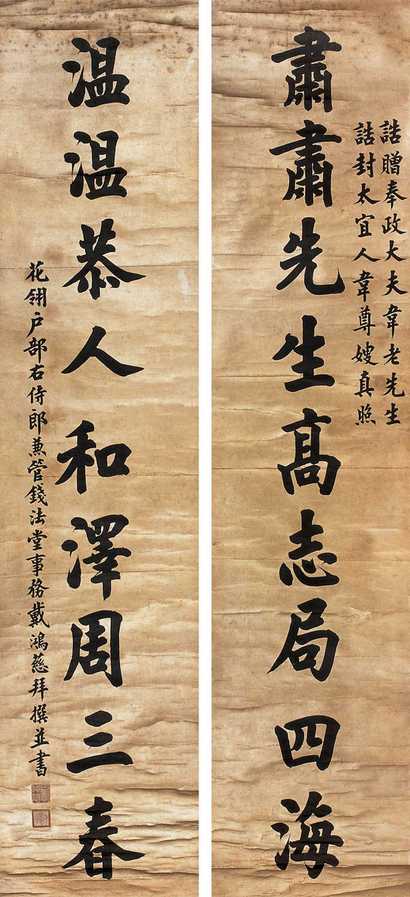 誥贈奉政大夫韋老先生
誥封太宜人韋尊嫂真照
肅肅先生高志局四海
溫溫恭人和澤周三春
花翎户部右侍郎兼管錢法堂事務戴鴻慈拜撰並書